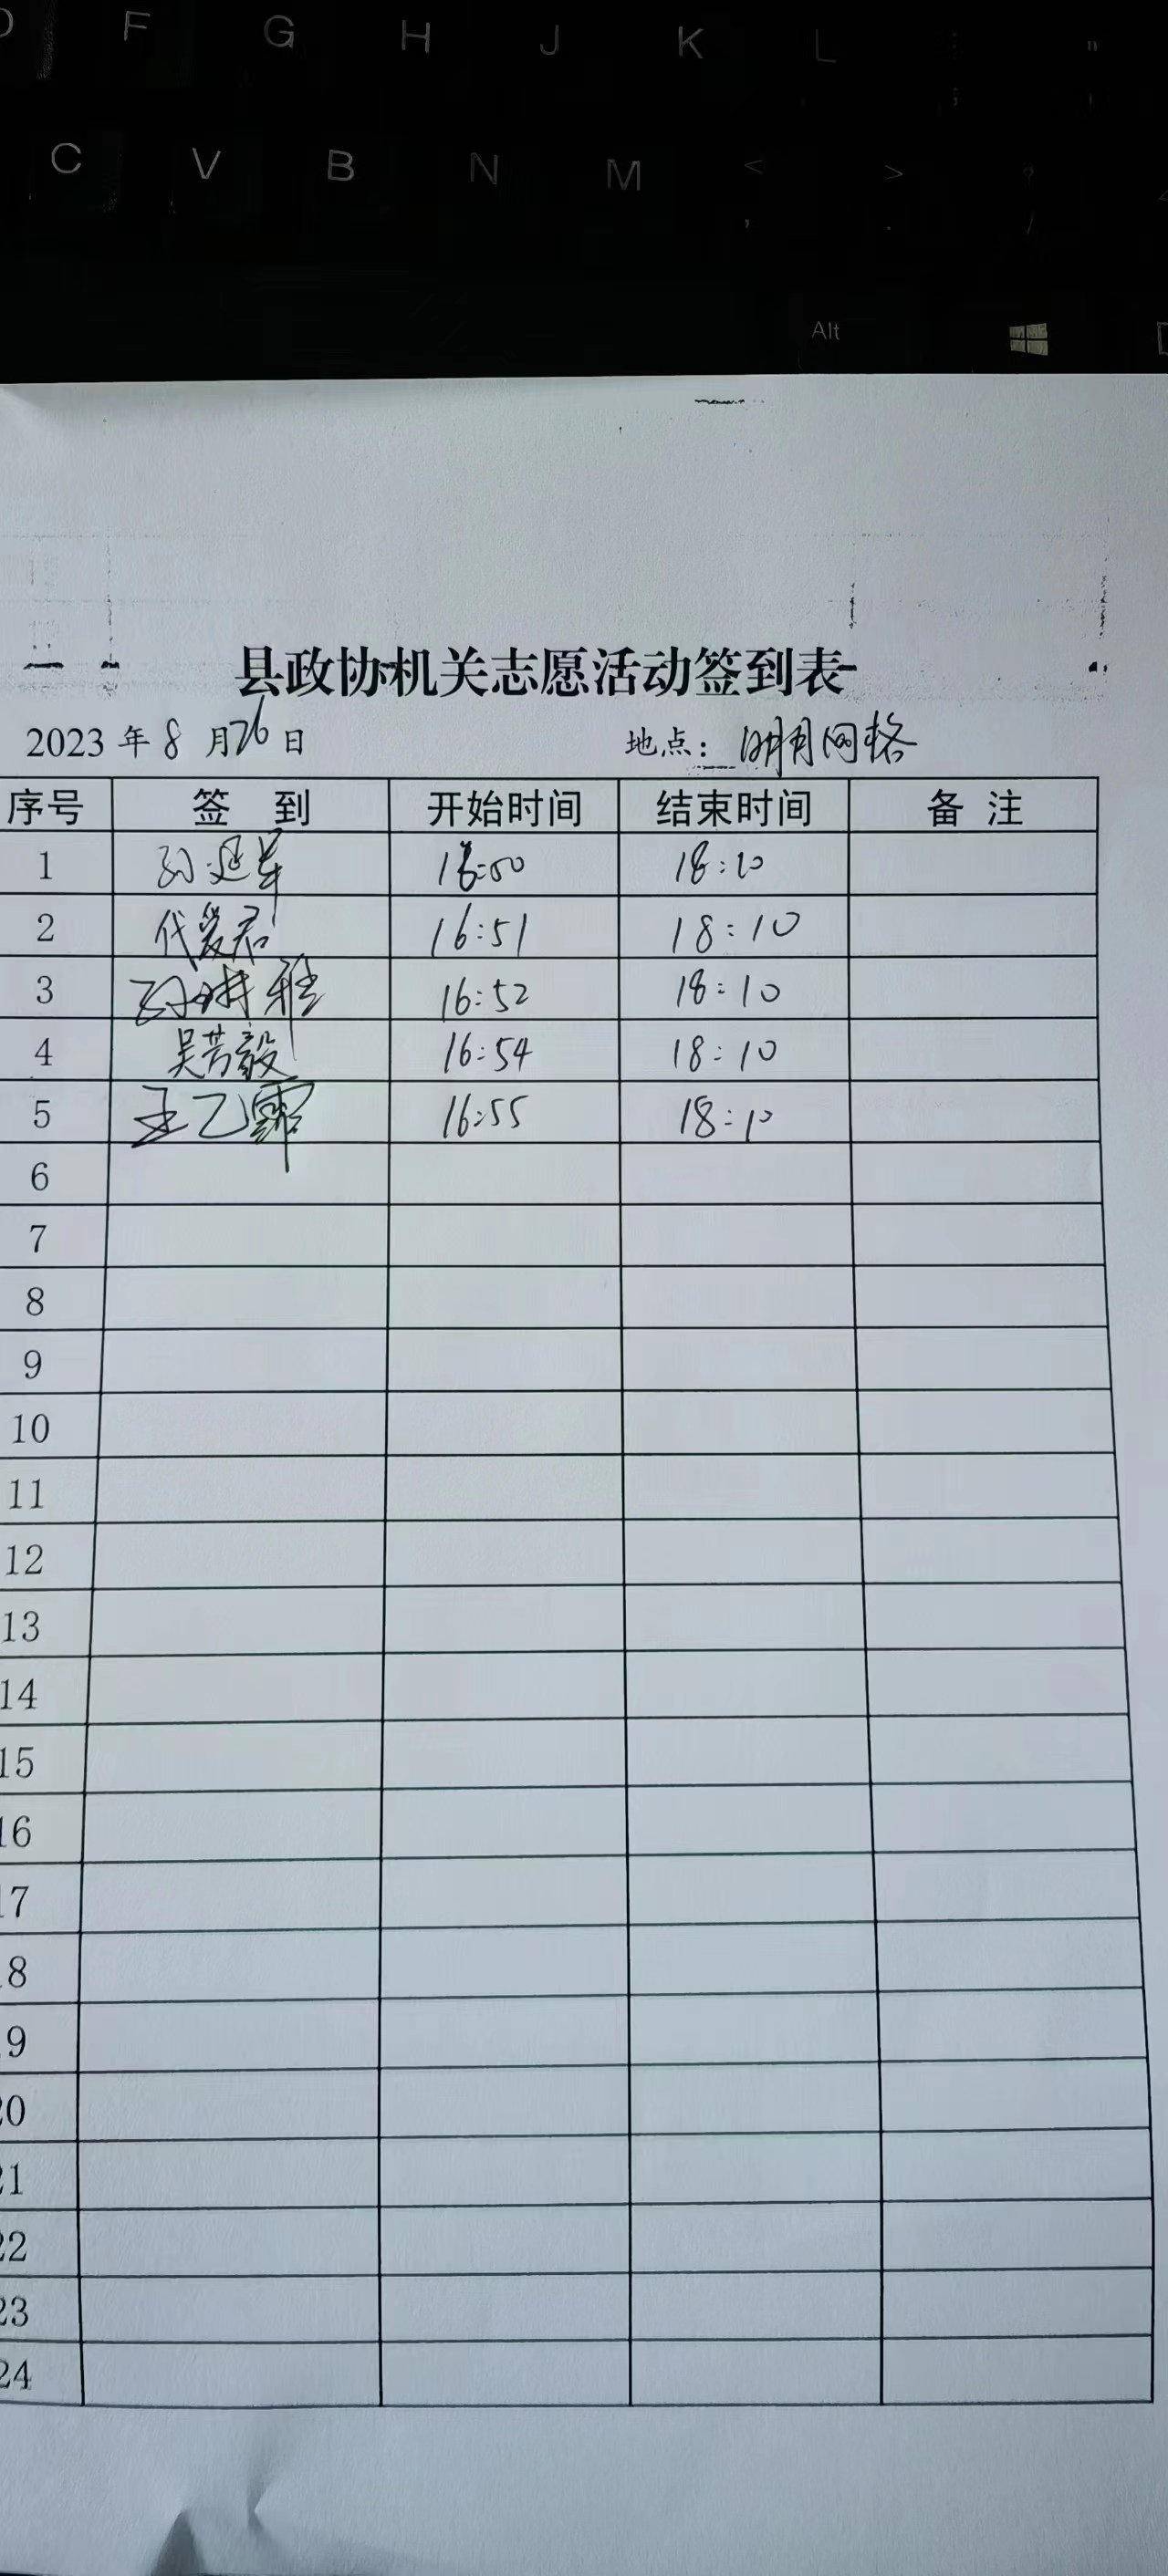 F G H J K L : "
;
C V B N M < > ?
, . /
Alt
县政协机关志愿活动签到表
2023 年 8 月 26 日 地点: 明月网格
序号 签 到 开始时间 结束时间 备 注
1 孙 18:10
2 代爱君 16:51 18:10
3 孙琳雅 16:52 18:10
4 吴芳毅 16:54 18:10
5 王乙霏 16:55 18:10
6
7
8
9
10
11
12
13
14
15
16
17
18
19
20
21
22
23
24